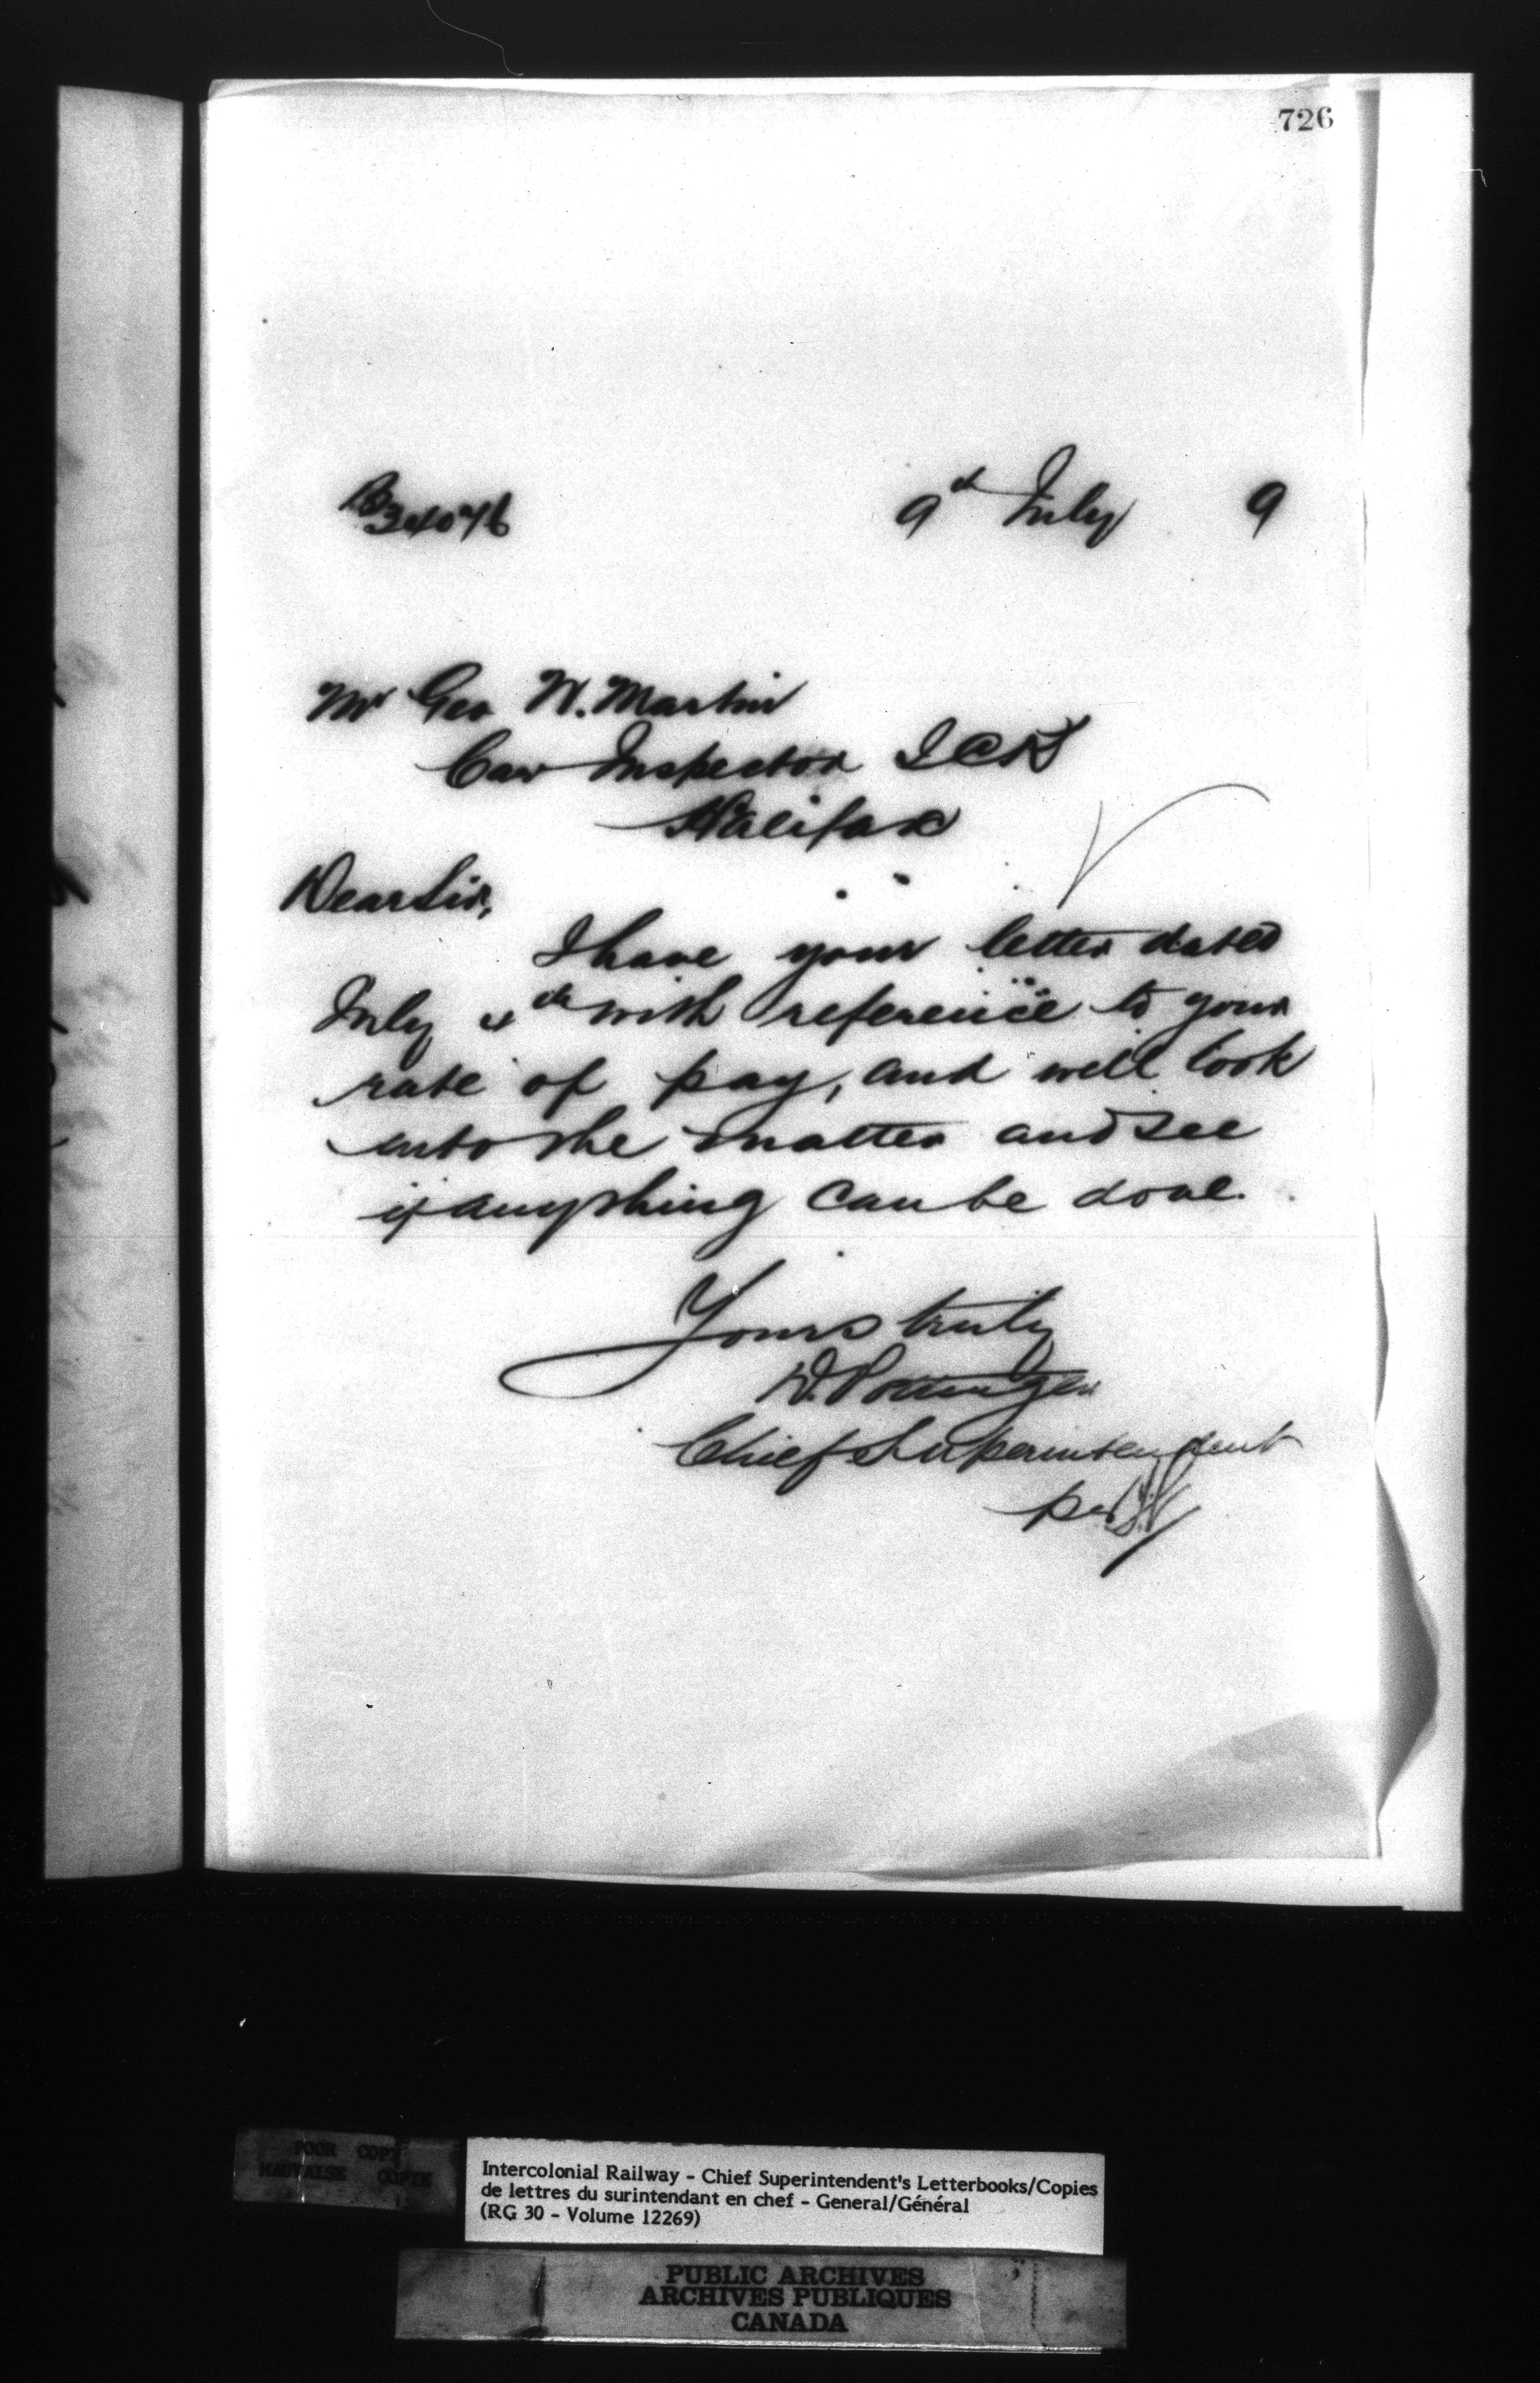 726
B34076
9th July 9
Mr Geo W. Martin
Car Inspector ICR
Halifax
Dear Sir,
I have your letter dated
July 4th with reference to your
rate of pay, and will look
into the matter and see
if anything can be done.
Yours truly
D. Pottinger
Chief Superintendent
per
POOR COPY
MAUVAISE COPIE
Intercolonial Railway - Chief Superintendent's Letterbooks/Copies
de lettres du surintendant en chef - General/Général
(RG 30 - Volume 12269)
PUBLIC ARCHIVES
ARCHIVES PUBLIQUES
CANADA